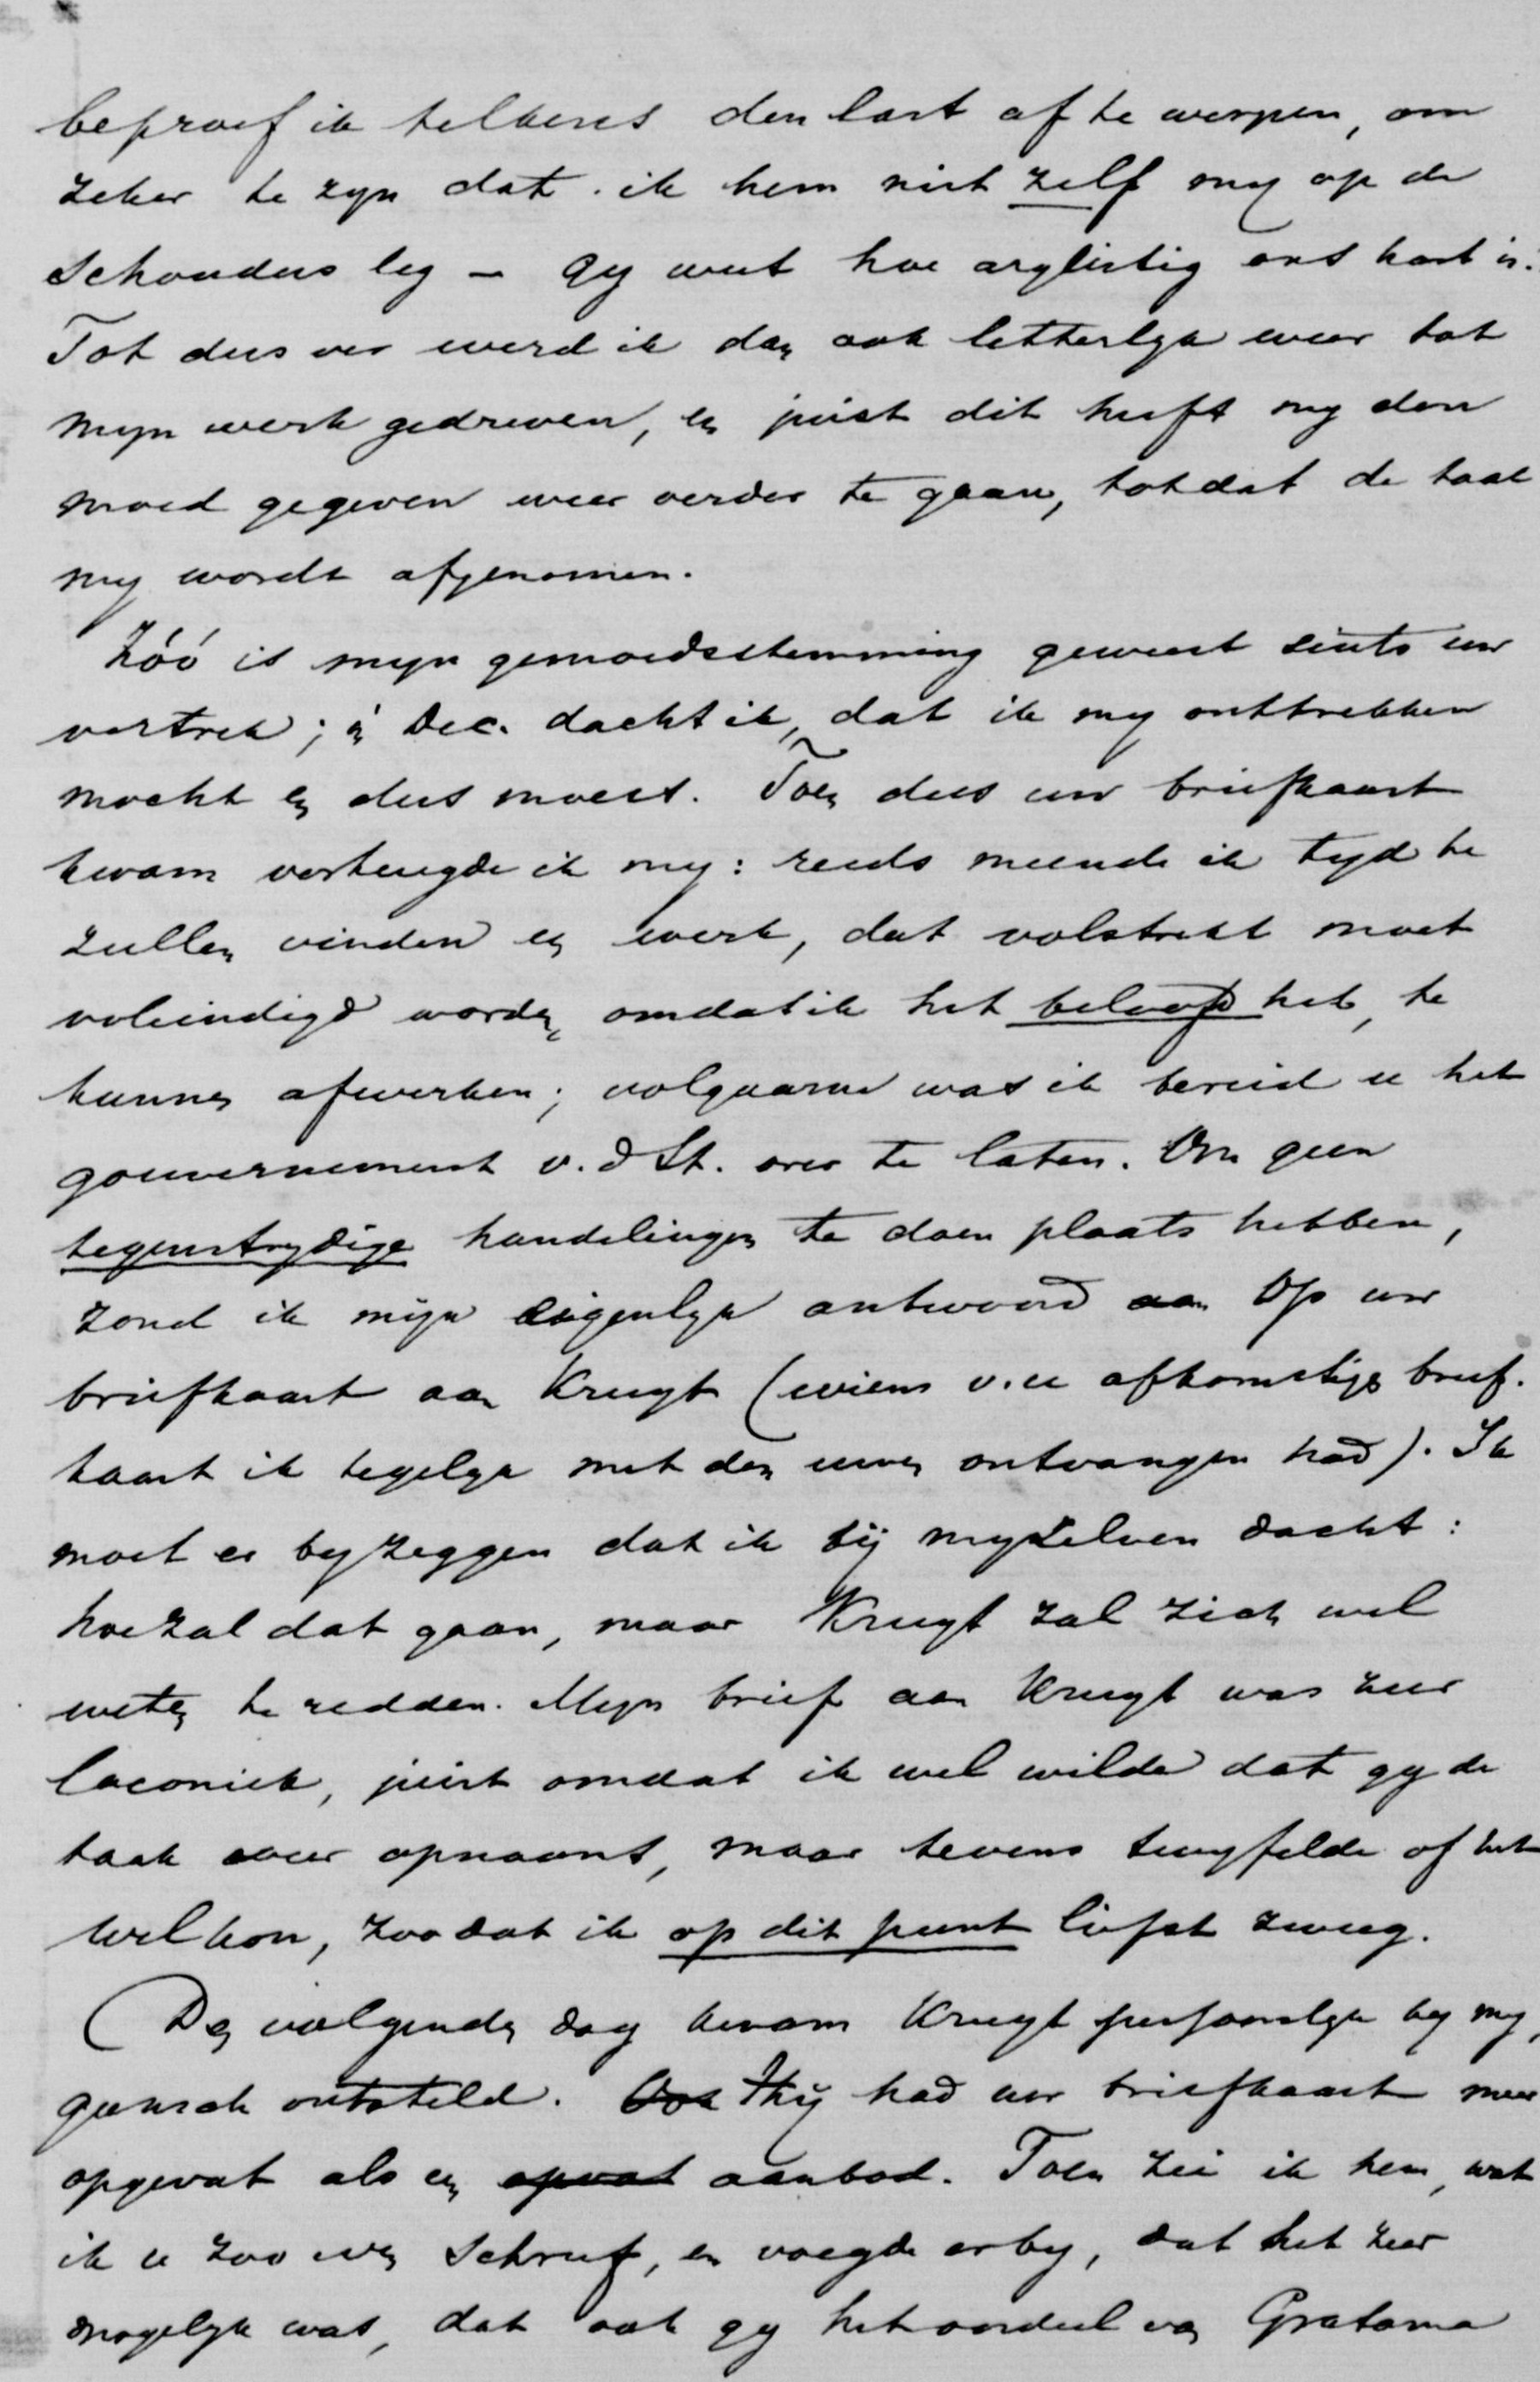 beproef ik telkens den last af te werpen, om
zeker te zyn dat ik hem niet zelf my op de
schouders leg – gy weet hoe arglistig ons hart is.
Tot dusver werd ik dan ook letterlyk weer tot
myn werk gedreven, en juist dit heeft my den
moed gegeven weer verder te gaan, totdat de taak
my wordt afgenomen.
Zóó is myn gemoedsstemming geweest sints uw
vertrek; in Dec. dacht ik, dat ik my onttrekken
mocht en dus moest. Toen dus uw briefkaart
kwam verheugde ik my: reeds meende ik tyd te
zullen vinden en werk, dat volstrekt moet
voleindigd worden, omdat ik het beloofd heb, te
kunnen afwerken; volgaarne was ik bereid u het
gouvernement v. d St. over te laten. Om geen
tegenstrydige handelingen te doen plaats hebben,
zond ik mijn eigenlyk antwoord aan op uw
briefkaart aan Kruyt (wiens v. u afkomstige brief-
kaart ik tegelyk met den uwen ontvangen had). Ik
moet er by zeggen dat ik bij myzelven dacht:
hoe zal dat gaan, maar Kruyt zal zich wel
weten te redden. Myn brief aan Kruyt was zeer
laconiek, juist omdat ik wel wilde dat gy de
taak weer opnaamt, maar tevens twyfelde of het
wel kon, zoodat ik op dit punt liefst zweeg.
(Den volgenden dag kwam Kruyt persoonlyk by my,
gansch ontsteld. Ook Hij had uw briefkaart meer
opgevat als een opvat aanbod. Toen zei ik hem, wat
ik u zoo even schreef, en voegde erby, dat het zeer
mogelyk was, dat ook gy het oordeel van Gratama